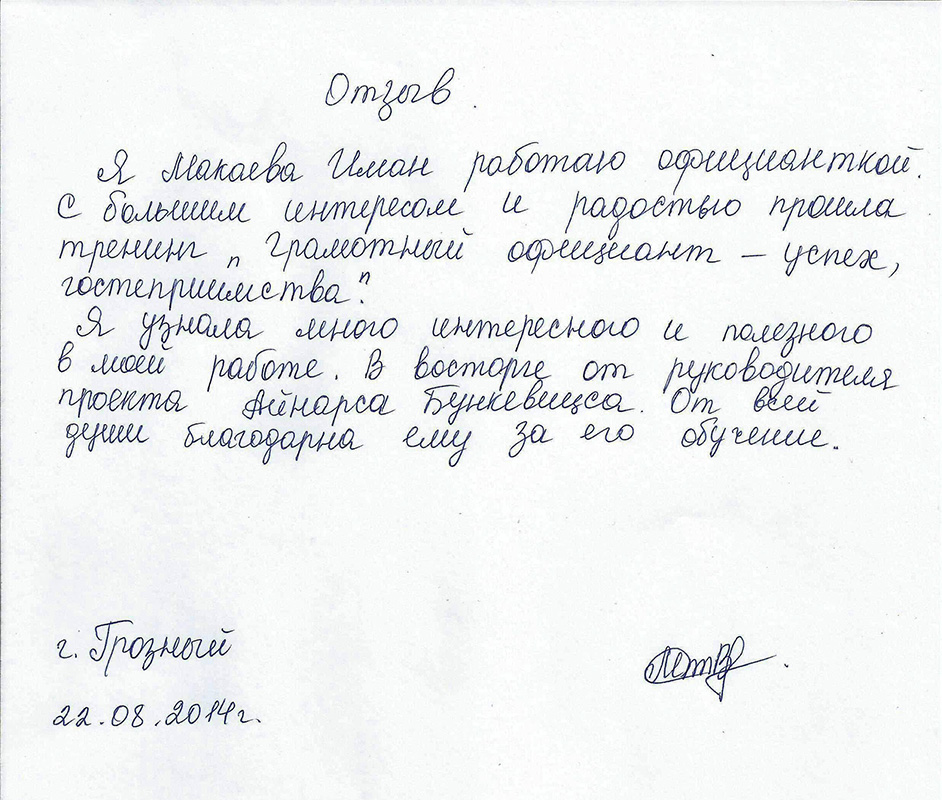 Отзыв.
Я Макаева Иман работаю официанткой.
С большим интересом и радостью прошла
тренинг „Грамотный официант – успех,
гостеприимства".
Я узнала много интересного и полезного
в моей работе. В восторге от руководителя
проекта Айнарса Бункевицса. От всей
души благодарна ему за его обучение.
г. Грозный
22.08.2014г.